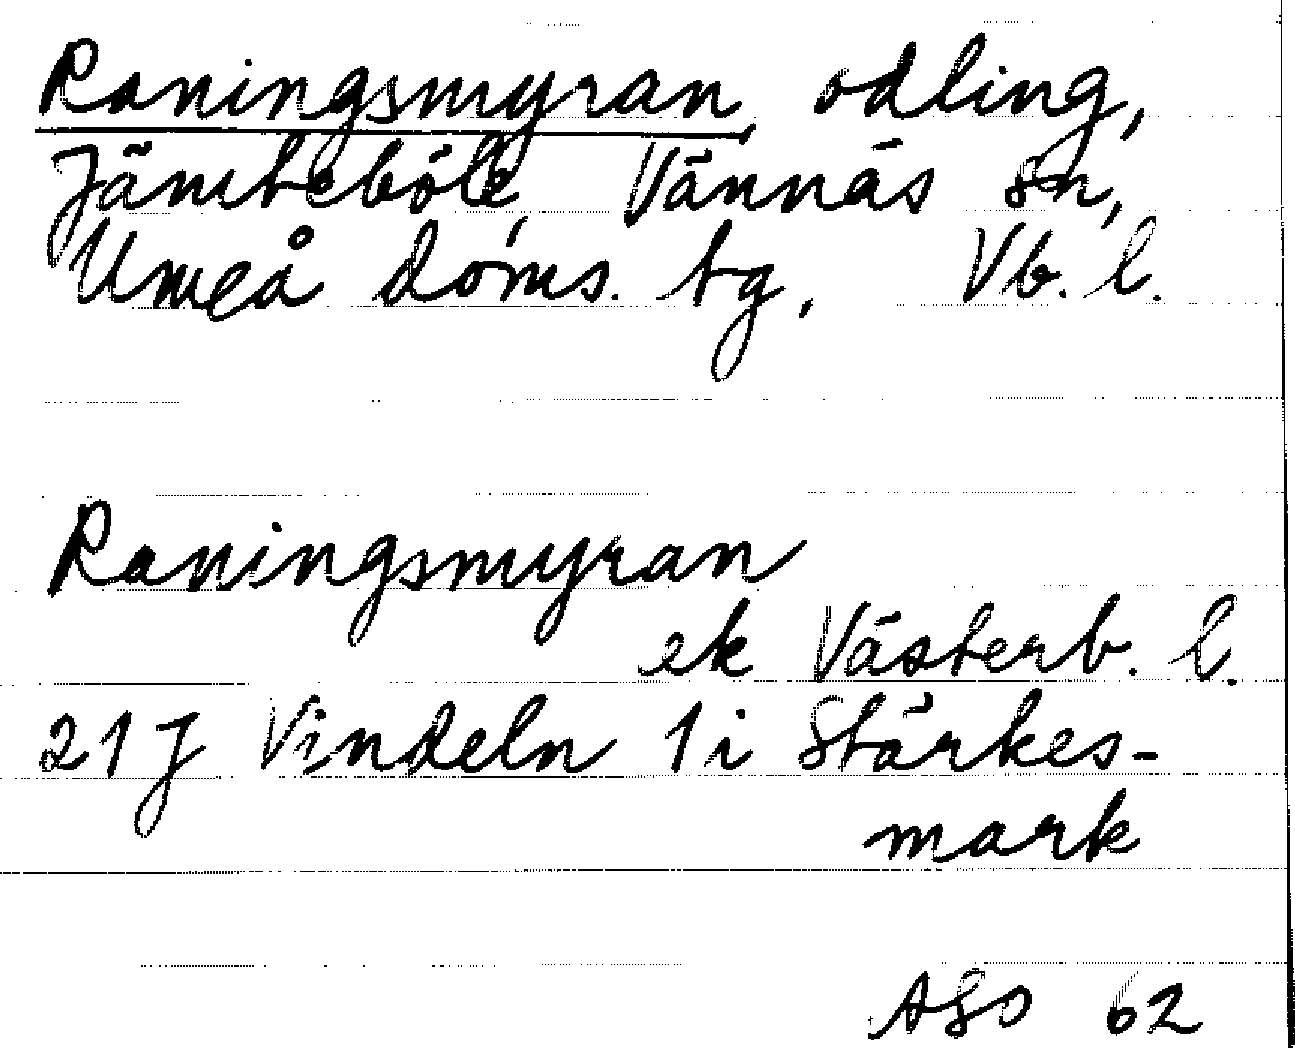 Raningsmyran, odling,
Jämteböle, Vännäs sn,
Umeå doms. tg, Vb. l.
Raningsmyran
ek Västerb. l.
21J Vindeln 1i Stärkes-
mark
ASO 62